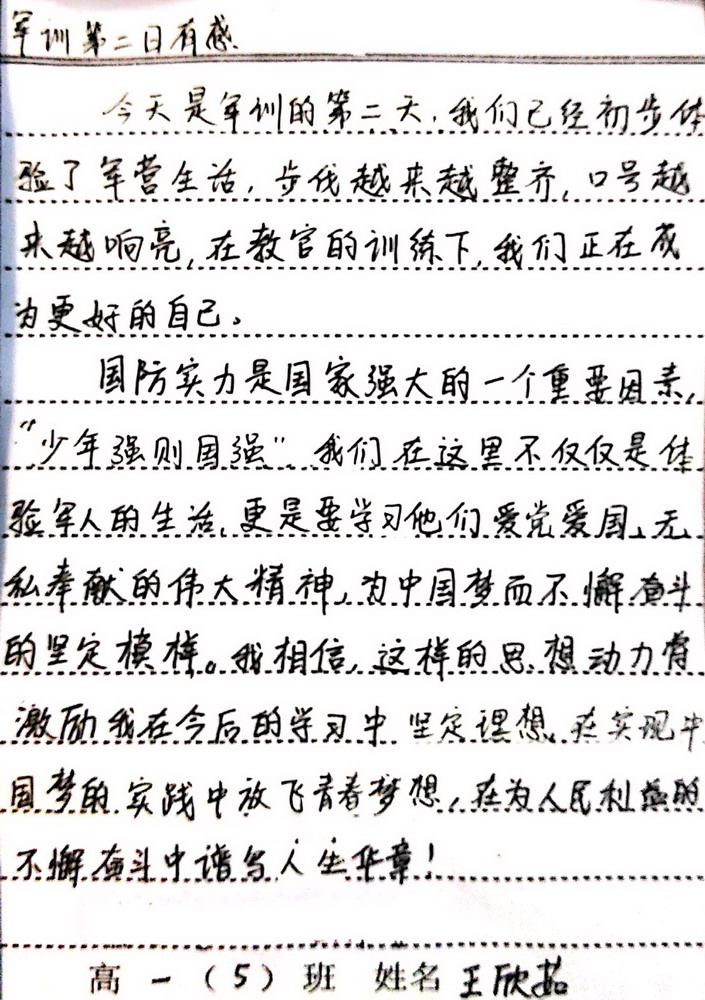 军训第二日有感
今天是军训的第二天,我们已经初步体
验了军营生活,步伐越来越整齐,口号越
来越响亮,在教官的训练下,我们正在成
为更好的自己。
国防实力是国家强大的一个重要因素,
“少年强则国强”我们在这里不仅仅是体
验军人的生活,更是要学习他们爱党爱国、无
私奉献的伟大精神,为中国梦而不懈奋斗
的坚定模样。我相信,这样的思想动力有
激励我在今后的学习中坚定理想、在实现中
国梦的实践中放飞青春梦想,在为人民利益的
不懈奋斗中谱写人生华章!
高一(5)班 姓名 王欣茹